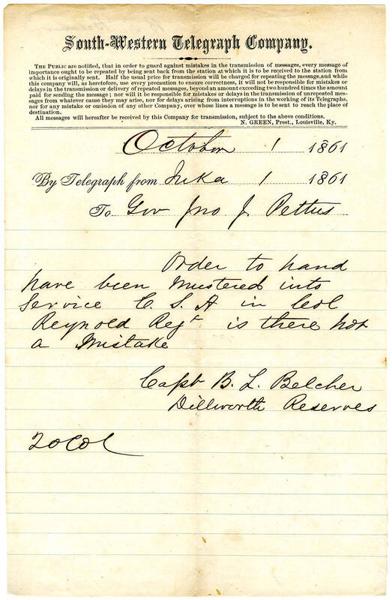 South-Western Telegraph Company.
THE PUBLIC are notified, that in order to guard against mistakes in the transmission of messages, every message of
importance ought to be repeated by being sent back from the station at which it is to be received to the station from
which it is originally sent. Half the usual price for transmission will be charged for repeating the message, and while
this company will, as heretofore, use every precaution to ensure correctness, it will not be responsible for mistakes or
delays in the transmission or delivery of repeated messages, beyond an amount exceeding two hundred times the amount
paid for sending the message; nor will it be responsible for mistakes or delays in the transmission of unrepeated mes-
sages from whatever cause they may arise, nor for delays arising from interruptions in the working of its Telegraphs,
nor for any mistake or omission of any other Company, over whose lines a message is to be sent to reach the place of
destination.
All messages will hereafter be received by this Company for transmission, subject to the above conditions.
N. GREEN, Prest., Louisville, Ky.
October 1 1861
By Telegraph from Iuka 1 1861
To Gov Jno J. Pettus
Order to hand
have been Mustered into
Service C. S. A in Col
Reynold Regt is there not
a Mistake
Capt B. L. Belcher
Dillworth Reserves
20 Col